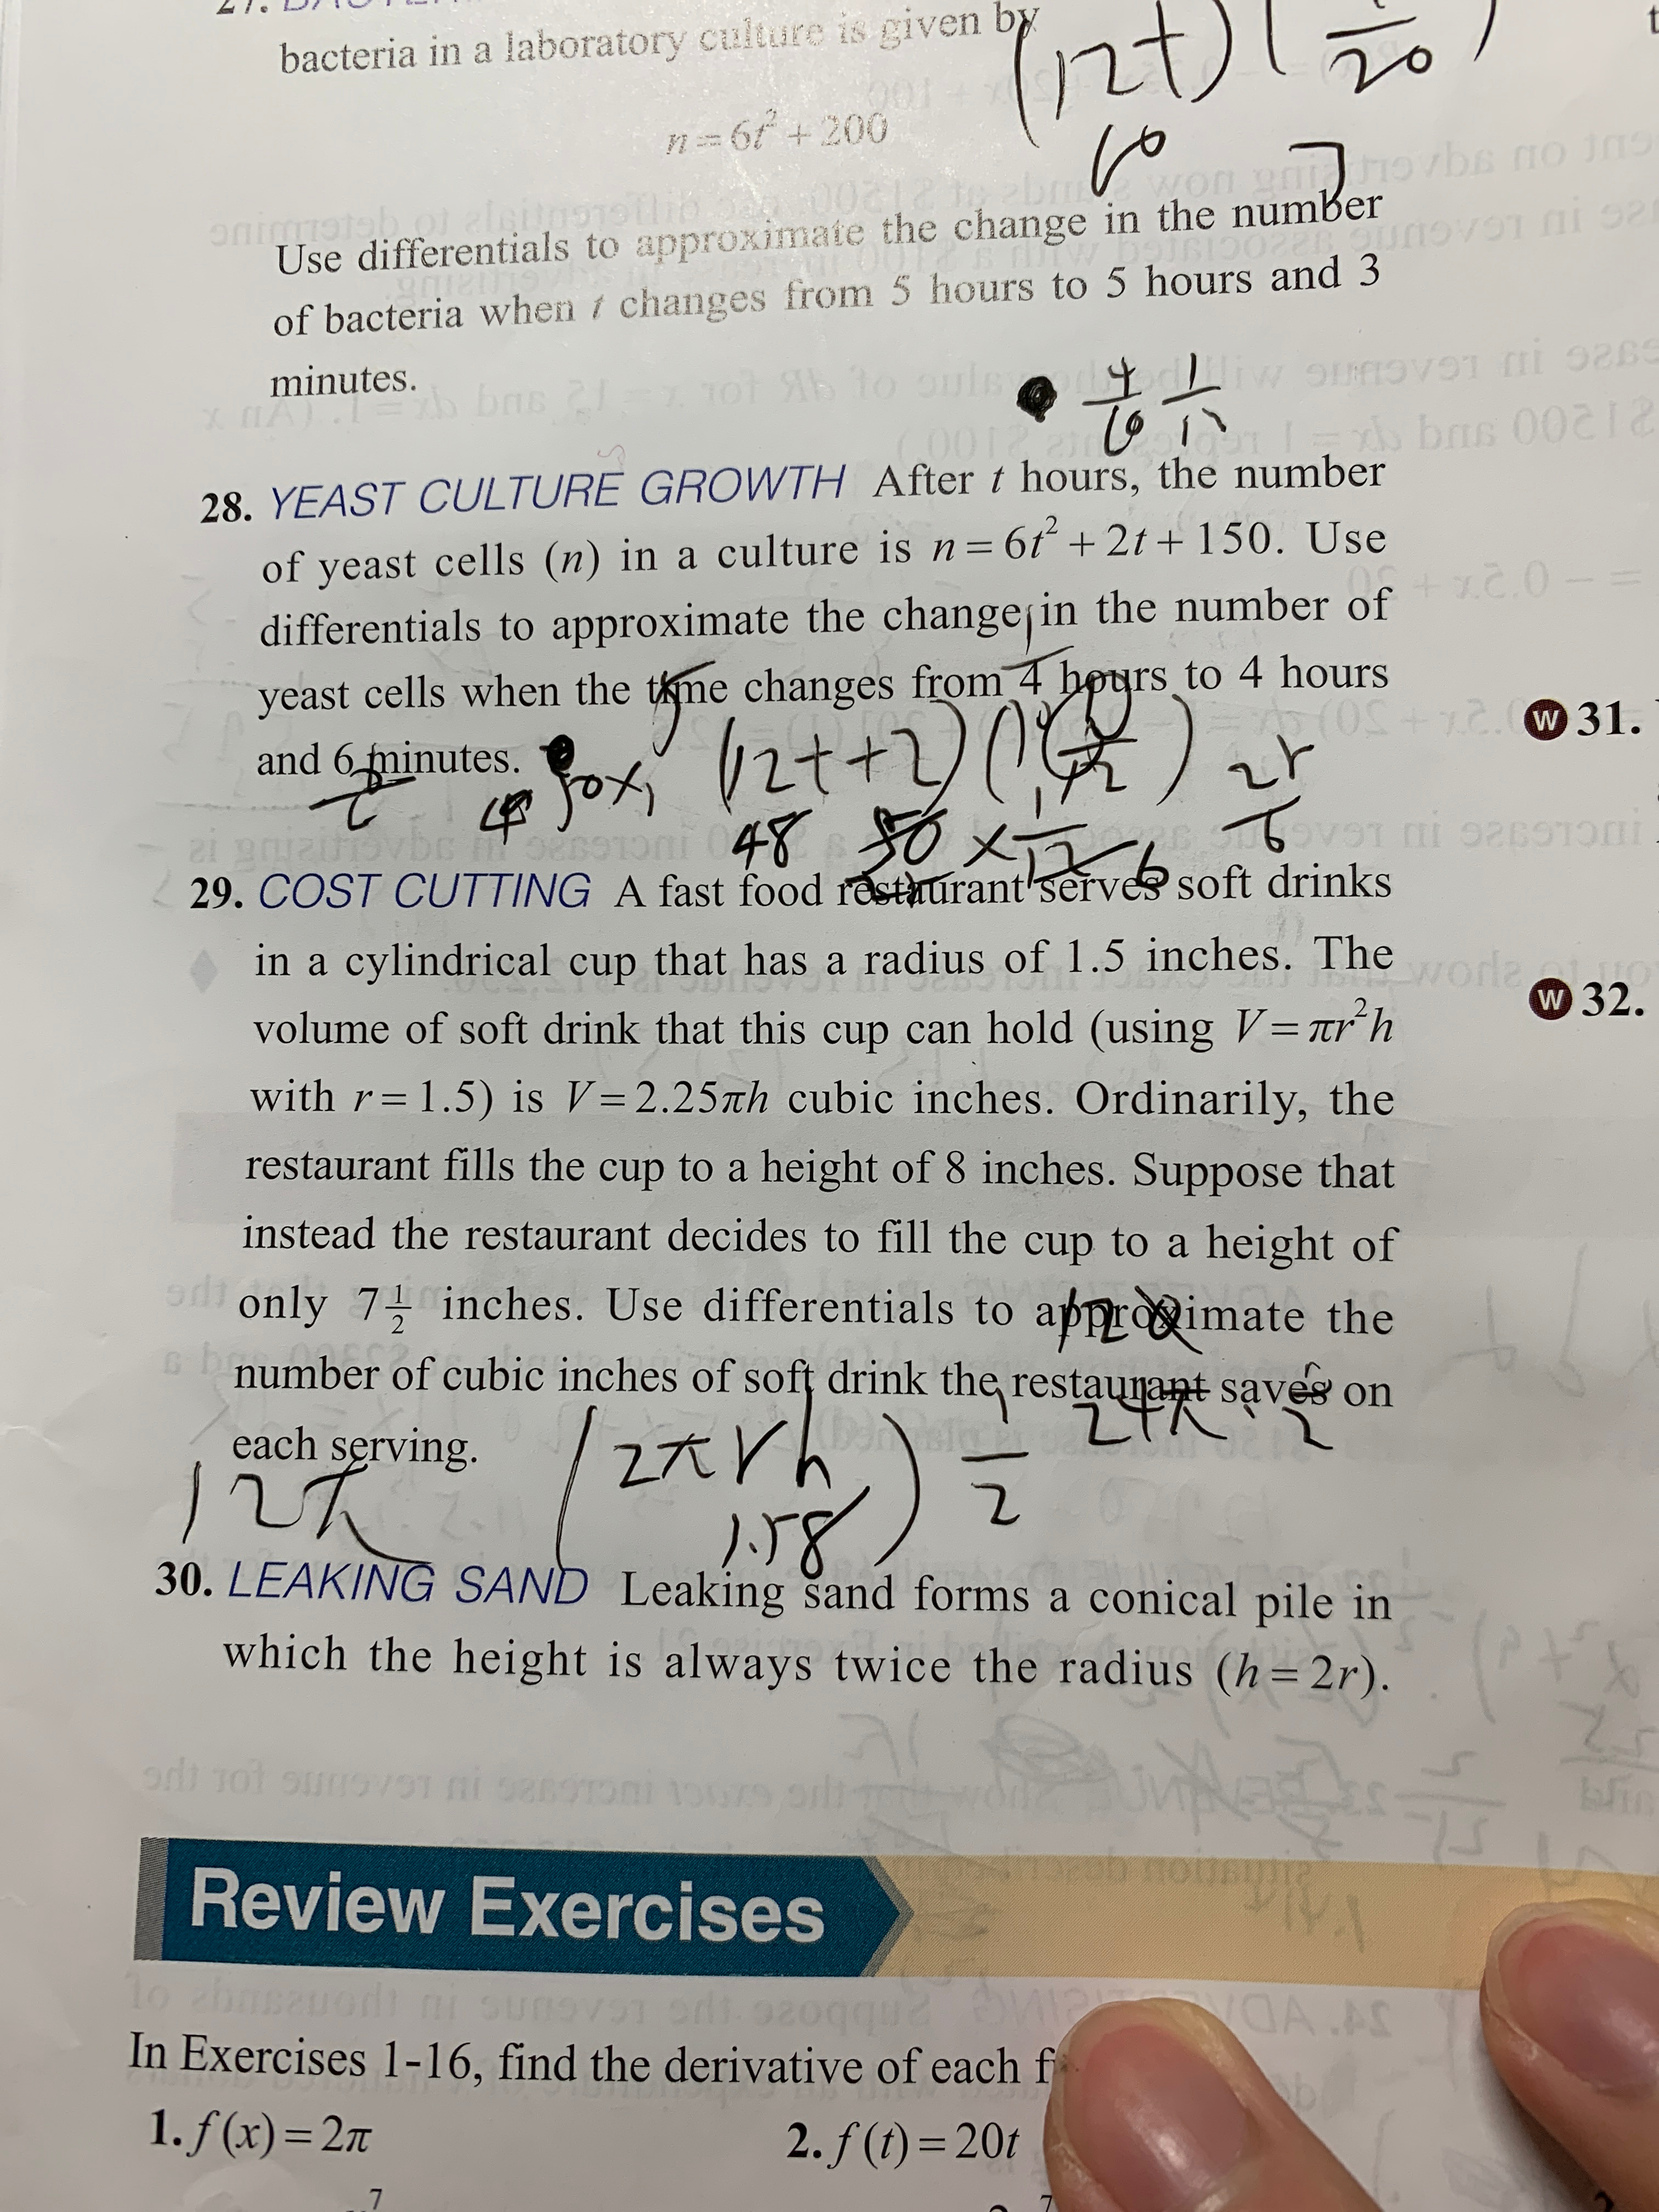 bacteria in a laboratory culture is given by
(12t)(
20
)
60
n = 6t² + 200
Use differentials to approximate the change in the number
of bacteria when t changes from 5 hours to 5 hours and 3
minutes.
28. YEAST CULTURE GROWTH After t hours, the number
of yeast cells (n) in a culture is n = 6t² + 2t + 150. Use
differentials to approximate the change in the number of
yeast cells when the time changes from 4 hours to 4 hours
and 6 minutes.
(12t+2)(
48 50 × 1/12 6
29. COST CUTTING A fast food restaurant serves soft drinks
in a cylindrical cup that has a radius of 1.5 inches. The
volume of soft drink that this cup can hold (using V = πr²h
with r = 1.5) is V = 2.25πh cubic inches. Ordinarily, the
restaurant fills the cup to a height of 8 inches. Suppose that
instead the restaurant decides to fill the cup to a height of
only 7 1/2 inches. Use differentials to approximate the
number of cubic inches of soft drink the restaurant saves on
each serving.
(2πrh) 1/2 24π · 2
12π
1.5 8
30. LEAKING SAND Leaking sand forms a conical pile in
which the height is always twice the radius (h = 2r).
W 31.
W 32.
Review Exercises
In Exercises 1-16, find the derivative of each
1. f(x) = 2π
2. f(t) = 20t
7
7